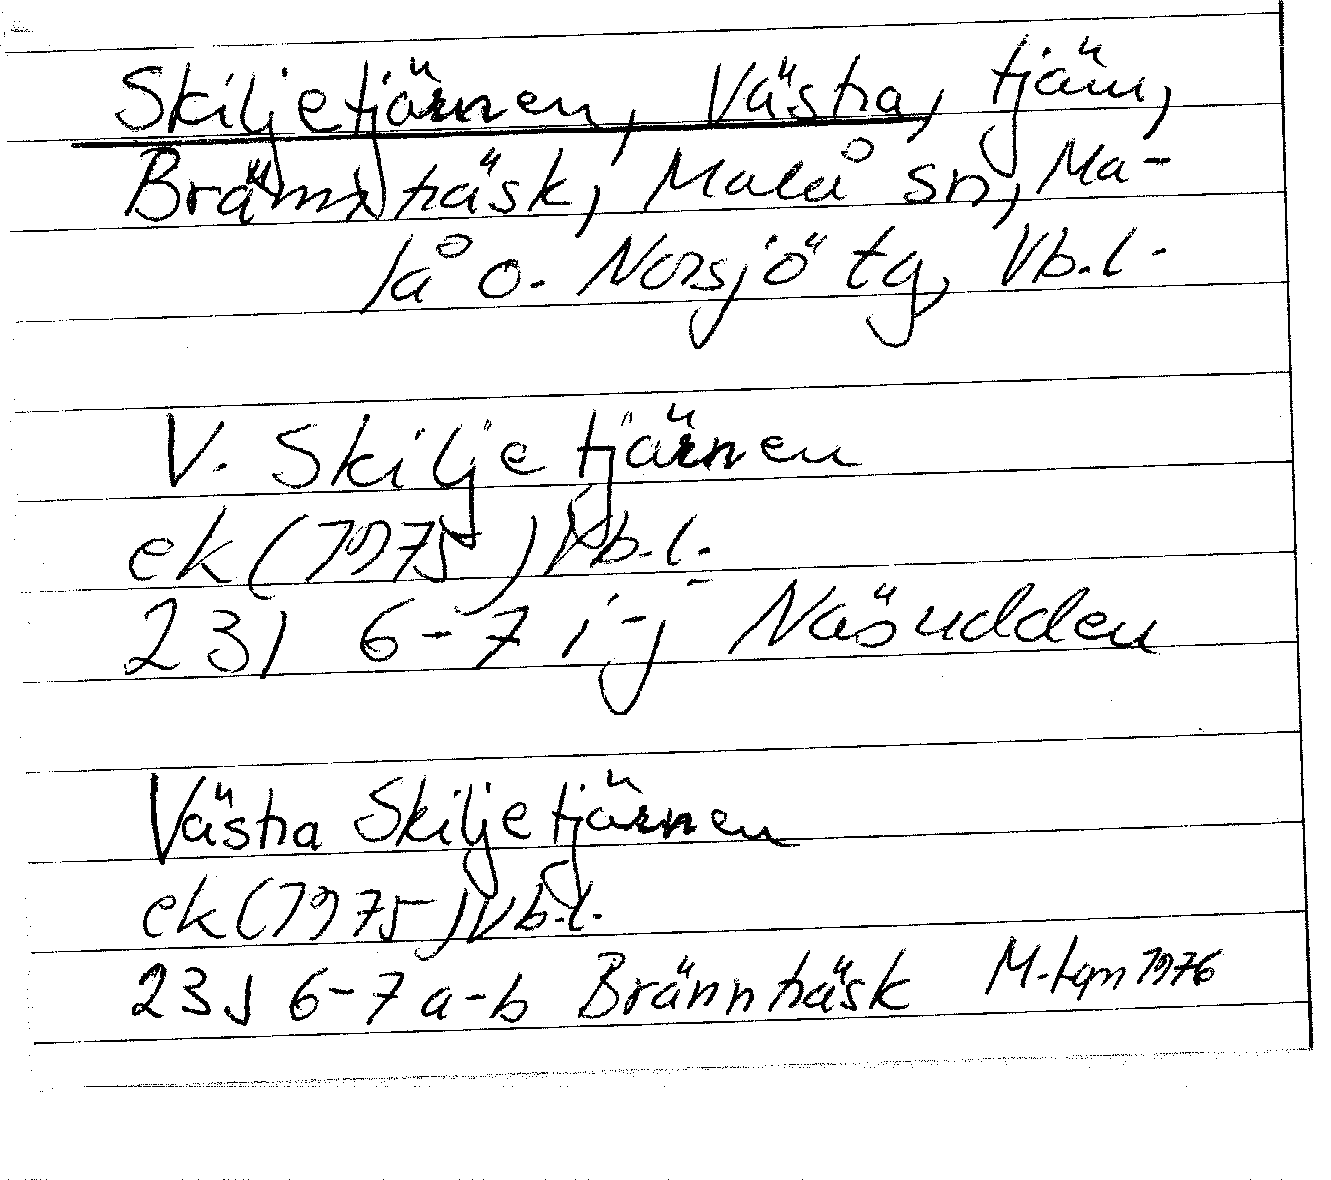 Skiljetjärnen, Västra, tjärn,
Brännträsk, Malå sn, Ma-
lå o. Norsjö tg, Vb.l.
V. Skiljetjärnen
ek (1975) Vb.l.
23I 6-7 i-j Näsudden
Västra Skiljetjärnen
ek (1975) Vb.l.
23J 6-7 a-b Brännträsk 1976